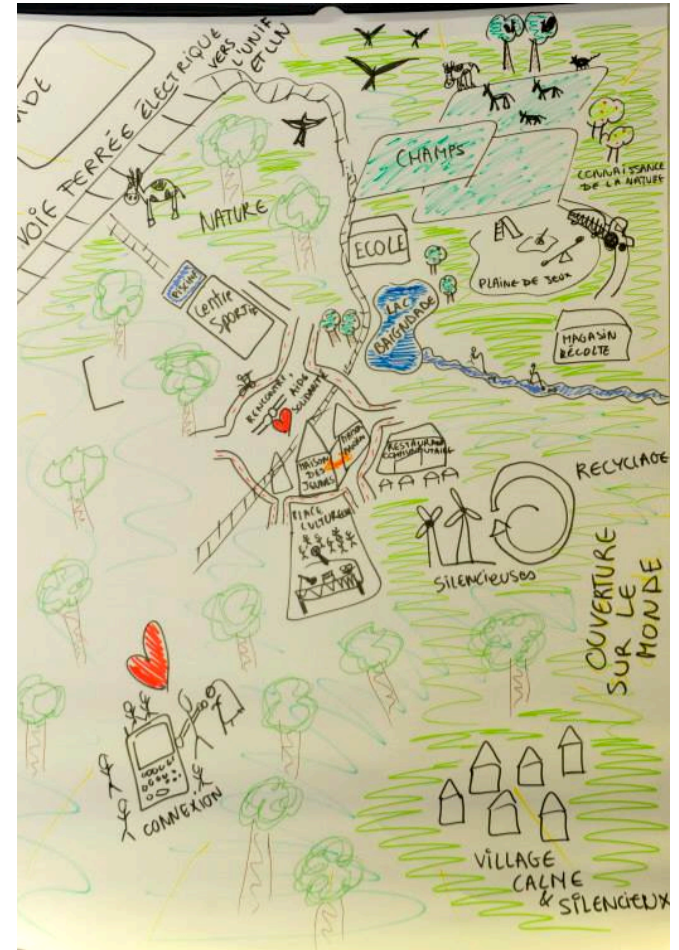 VOIE FERRÉE ÉLECTRIQUE
VERS
L'UNIF
ET LLN
NATURE
CHAMPS
CONNAISSANCE
DE LA NATURE
ECOLE
PLAINE DE JEUX
PISCINE
Centre
Sportif
LAC
BAIGNDADE
MAGASIN
RÉCOLTE
RENCONTRE,
AIDE
SOLIDARITÉ
MAISON
DES
JEUNES
MAISON
RESTAURANT
COMMUNAUTAIRE
PLACE
CULTURELLE
RECYCLAGE
SILENCIEUSES
OUVERTURE
SUR LE
MONDE
CONNEXION
VILLAGE
CALME
& SILENCIEUX